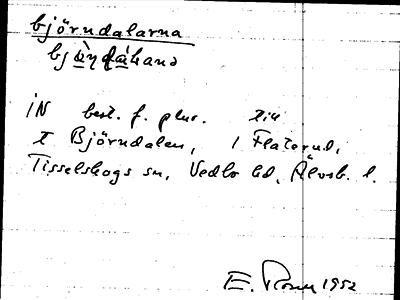 björndalarna
bjɷ̀ṇdáḷana
iN best. f. plur. till
t Björndalen, i Flaterud,
Tisselskogs sn, Vedbo hd, Älvsb. l.
E. Rosen 1952